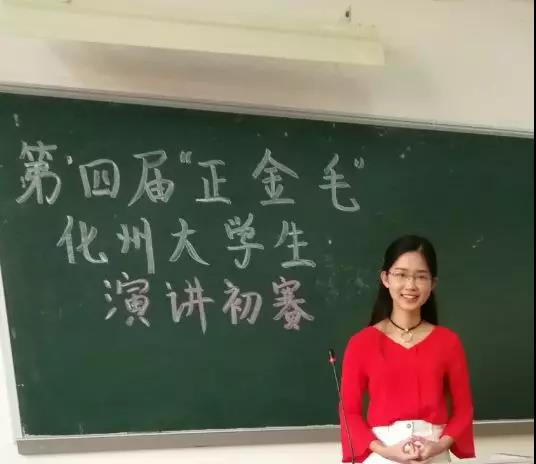 第四届"正金毛"
化州大学生
演讲初赛